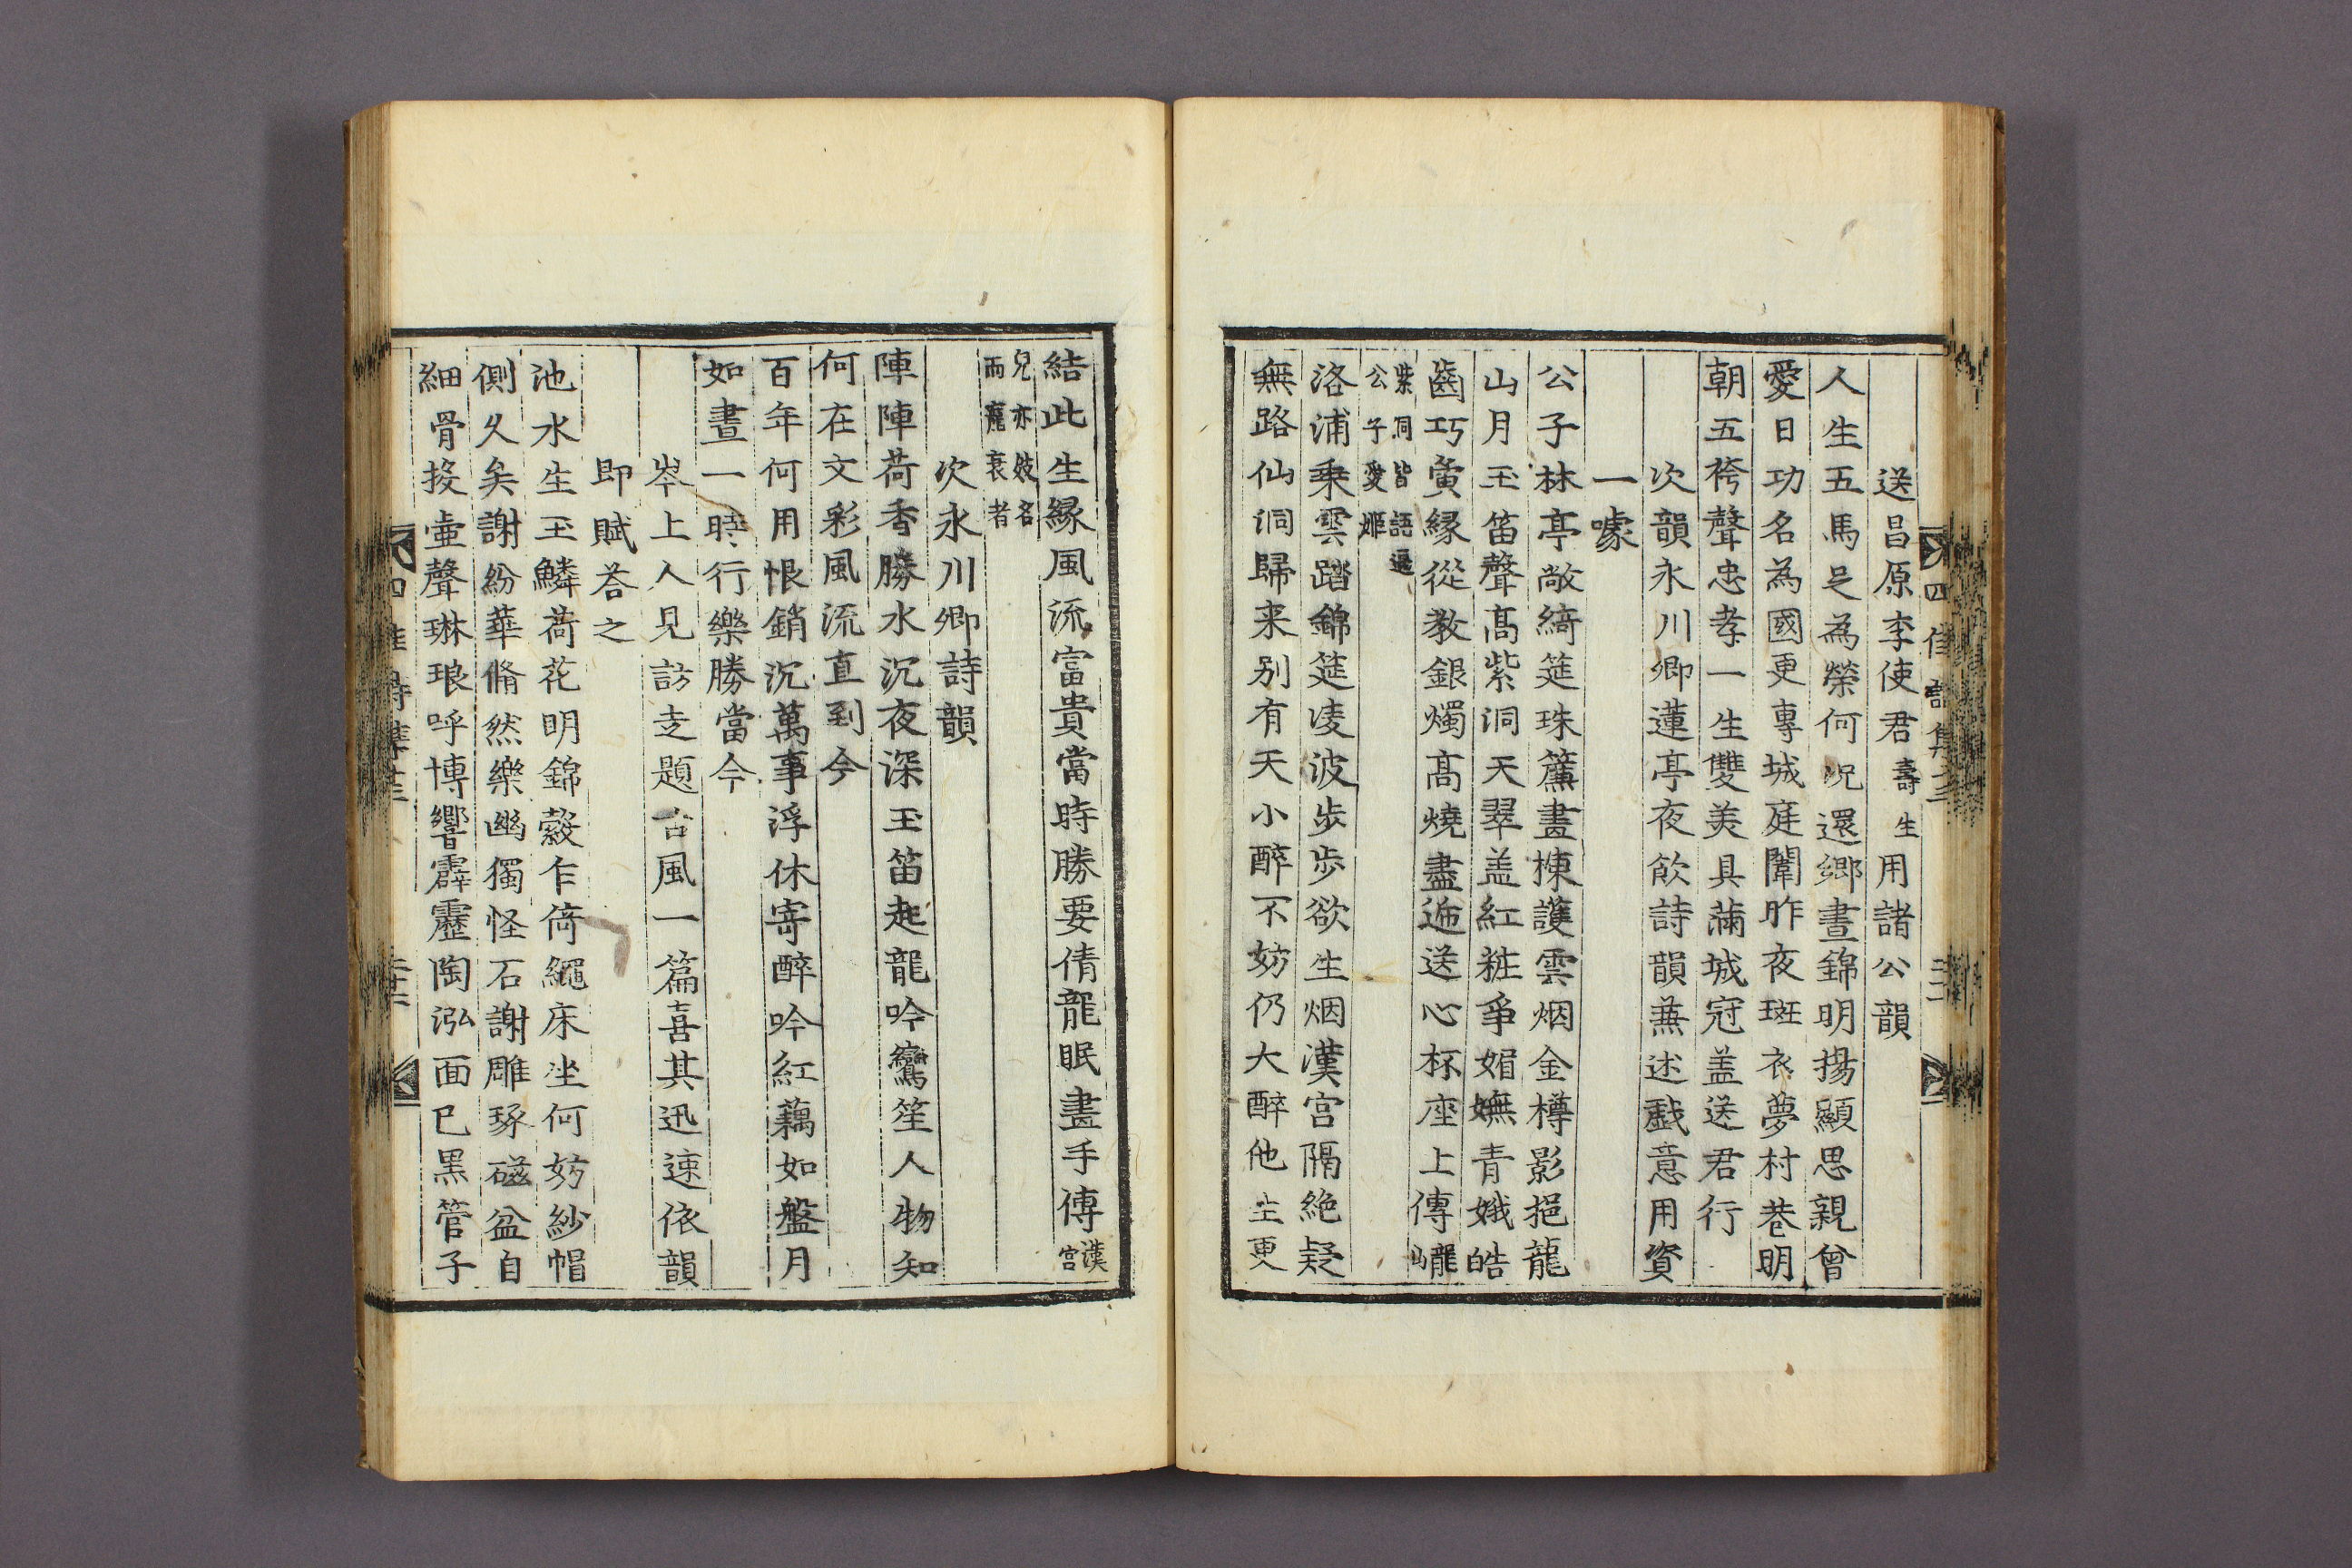 送昌原李使君壽生用諸公韻
人生五馬足為榮何況還鄉晝錦明揚顯思親曾
愛日功名為國更專城庭闈昨夜斑衣夢村巷明
朝五袴聲忠孝一生雙美具滿城冠盖送君行
次韻永川卿蓮亭夜飲詩韻兼述戱意用資
一噱
公子林亭敞綺筵珠簾畫棟護雲烟金樽影挹龍
山月玉笛聲高紫洞天翠盖紅粧爭媚嫵青娥皓
齒巧夤緣從教銀燭高燒盡迤送心杯座上傳巄
紫洞皆語逼
公子愛姬
洛浦乗雲踏錦筵凌波步步欲生烟漢宮隔絶疑
無路仙洞歸来别有天小醉不妨仍大醉他生更
結此生緣風流富貴當時勝要倩龍眠畫手傳漢宮
兒亦妓名
而寵衰者
次永川卿詩韻
陣陣荷香勝水沉夜深玉笛起龍吟鸞笙人物知
何在文彩風流直到今
百年何用恨銷沉萬事浮休寄醉吟紅藕如盤月
如晝一時行樂勝當今
岑上人見訪走題古風一篇喜其迅速依韻
即賦荅之
池水生玉鱗荷花明錦縠乍倚繩床坐何妨紗帽
側久矣謝紛華翛然樂幽獨怪石謝雕琢磁盆自
細骨投壷聲琳琅呼博響霹靂陶泓面已黑管子